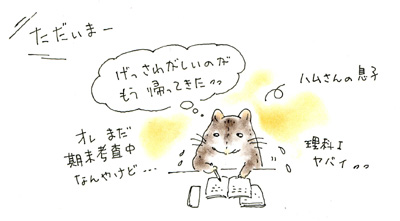 ただいまー
げっさわがしいのが
もう帰ってきたッッ
ハムさんの息子
オレまだ
期末考査中
なんやけど…
理科Ⅰ
ヤバイッッ